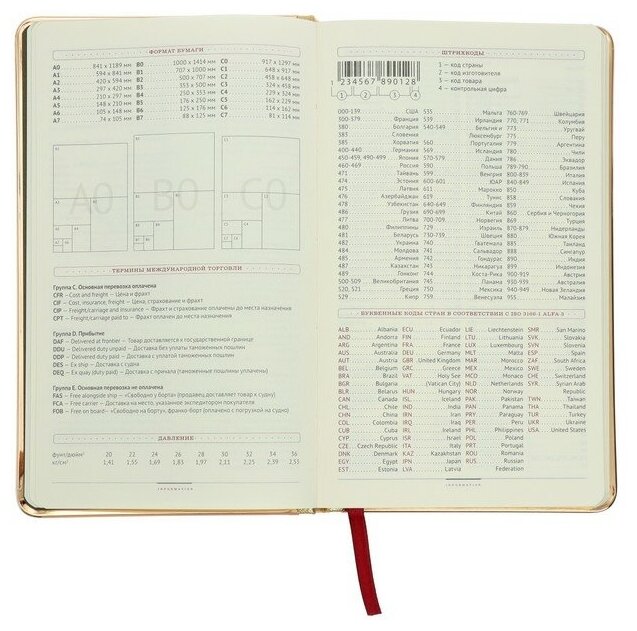 ФОРМАТ БУМАГИ
A0 841 x 1189 мм B0 1000 x 1414 мм C0 917 x 1297 мм
A1 594 x 841 мм B1 707 x 1000 мм C1 648 x 917 мм
A2 420 x 594 мм B2 500 x 707 мм C2 458 x 648 мм
A3 297 x 420 мм B3 353 x 500 мм C3 324 x 458 мм
A4 210 x 297 мм B4 250 x 353 мм C4 229 x 324 мм
A5 148 x 210 мм B5 176 x 250 мм C5 162 x 229 мм
A6 105 x 148 мм B6 125 x 176 мм C6 114 x 162 мм
A7 74 x 105 мм B7 88 x 125 мм C7 81 x 114 мм
A0 B0 C0
ТЕРМИНЫ МЕЖДУНАРОДНОЙ ТОРГОВЛИ
Группа C. Основная перевозка оплачена
CFR — Cost and freight — Цена и фрахт
CIF — Cost, insurance, freight — Цена, страхование и фрахт
CIP — Freight/carriage and insurance — Фрахт и страхование оплачены до места назначения
CPT — Freight/carriage paid to — Фрахт оплачен до места назначения
Группа D. Прибытие
DAF — Delivered at frontier — Товар доставляется к государственной границе
DDU — Delivered duty unpaid — Доставка без уплаты таможенных пошлин
DDP — Delivered duty paid — Доставка с уплатой таможенных пошлин
DES — Ex ship — Доставка с судна
DEQ — Ex quay (duty paid) — Доставка с причала (таможенные пошлины уплачены)
Группа E. Основная перевозка не оплачена
FAS — Free alongside ship — «Свободно на борту» (продавец доставляет товар к судну)
FCA — Free carrier — Доставка на место, указанное экспедитором покупателя
FOB — Free on board — «Свободно на борту», франко-борт (оплачено с погрузкой на судно)
ДАВЛЕНИЕ
фунт/дюйм² 20 22 24 26 28 30 32 34 36
кг/см² 1,41 1,55 1,69 1,83 1,97 2,11 2,25 2,39 2,53
INFORMATION
ШТРИХКОДЫ
1 234567 890128
1 2 3 4
1 — код страны
2 — код изготовителя
3 — код товара
4 — контрольная цифра
000-139 США 535 Мальта 760-769 Швейцария
300-379 Франция 539 Ирландия 770, 771 Колумбия
380 Болгария 540-549 Бельгия и 773 Уругвай
383 Словения Люксембург 775 Перу
385 Хорватия 560 Португалия 779 Аргентина
400-440 Германия 569 Исландия 780 Чили
450-459, 490-499 Япония 570-579 Дания 786 Эквадор
460-469 Россия 590 Польша 789-790 Бразилия
471 Тайвань 599 Венгрия 800-839 Италия
474 Эстония 600-601 ЮАР 840-849 Испания
475 Латвия 611 Марокко 850 Куба
476 Азербайджан 619 Тунис 858 Словакия
478 Узбекистан 640-649 Финляндия 859 Чехия
486 Грузия 690-699 Китай 860 Сербия и Черногория
477 Литва 700-709 Норвегия 869 Турция
480 Филиппины 729 Израиль 870-879 Нидерланды
481 Беларусь 730-739 Швеция 880 Южная Корея
482 Украина 740 Гватемала 885 Таиланд
484 Молдова 741 Сальвадор 888 Сингапур
485 Армения 742 Гондурас 890 Индия
487 Казахстан 743 Никарагуа 899 Индонезия
489 Гонконг 744 Коста-Рика 900-919 Австрия
500-509 Великобритания 745 Панама 930-939 Австралия
520, 521 Греция 750 Мексика 940-949 Новая Зеландия
529 Кипр 759 Венесуэла 955 Малайзия
БУКВЕННЫЕ КОДЫ СТРАН В СООТВЕТСТВИИ С ISO 3166-1 ALFA-3
ALB Albania ECU Ecuador LIE Liechtenstein SMR San Marino
AND Andorra FIN Finland LTU Lithuania SVK Slovakia
ARG Argentina FRA France LUX Luxembourg SVN Slovenia
AUS Australia DEU Germany MLT Malta ESP Spain
AUT Austria GBR United Kingdom MAR Morocco ZAF Sweden
BEL Belgium GRC Greece MEX Mexico SWE Sweden
BRA Brazil VAT Holy See MCO Monaco CHE Switzerland
BGR Bulgaria (Vatican City) NLD Netherlands SYR Syrian Arab
BLR Belarus HUN Hungary NOR Norway Republic
CAN Canada ISL Iceland PAK Pakistan TWN Taiwan
CHL Chile IND India PAN Panama THA Thailand
CHN China IRN Iran PRY Paraguay TUR Turkey
COL Colombia IRQ Iraq PER Peru UKR Ukraine
CUB Cuba IRL Ireland PHL Philippines USA United States
CYP Cyprus ISR Israel POL Poland
CZE Czech Republic ITA Italy PRT Portugal
DNK Denmark KAZ Kazakhstan ROU Romania
EGY Egypt JPN Japan RUS Russian
EST Estonia LVA Latvia Federation
INFORMATION